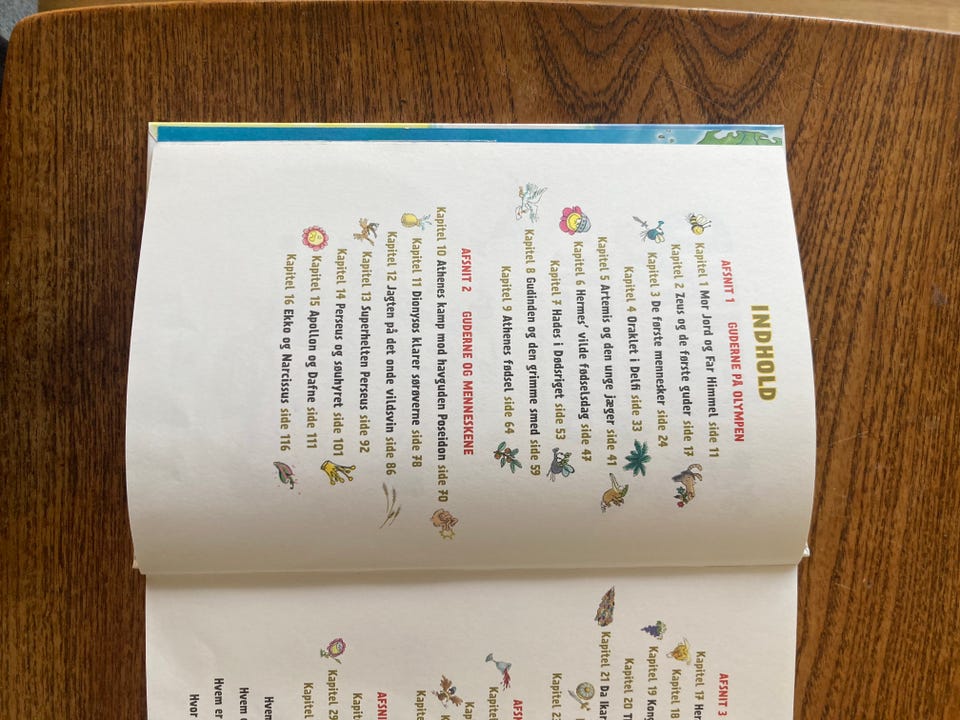 INDHOLD
AFSNIT 1 GUDERNE PÅ OLYMPEN
Kapitel 1 Mor Jord og Far Himmel side 11
Kapitel 2 Zeus og de første guder side 17
Kapitel 3 De første mennesker side 24
Kapitel 4 Oraklet i Delfi side 33
Kapitel 5 Artemis og den unge jæger side 41
Kapitel 6 Hermes' vilde fødselsdag side 47
Kapitel 7 Hades i Dødsriget side 53
Kapitel 8 Gudinden og den grimme smed side 59
Kapitel 9 Athenes fødsel side 64
AFSNIT 2 GUDERNE OG MENNESKENE
Kapitel 10 Athenes kamp mod havguden Poseidon side 70
Kapitel 11 Dionysos klarer sørøverne side 78
Kapitel 12 Jagten på det onde vildsvin side 86
Kapitel 13 Superhelten Perseus side 92
Kapitel 14 Perseus og søuhyret side 101
Kapitel 15 Apollon og Dafne side 111
Kapitel 16 Ekko og Narcissus side 116
AFSNIT 3
Kapitel 17 Her
Kapitel 18
Kapitel 19 Kong
Kapitel 20
Kapitel 21 Da Ikar
Kapitel
AFSN
Kapitel
Kapitel
Kapitel
AFSN
Kapit
Kapitel 29
Kapitel
Hvem
Hvem
Hvem er
Hvor